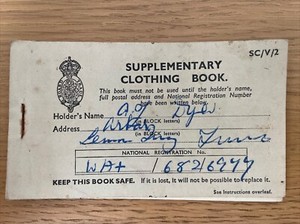 SC/V/2
SUPPLEMENTARY
CLOTHING BOOK.
This book must not be used until the holder's name,
full postal address and National Registration Number
have been written below.
Holder's Name Dyer
(in BLOCK letters)
Address
(in BLOCK letters)
NATIONAL REGISTRATION No.
KEEP THIS BOOK SAFE. If it is lost, it will not be possible to replace it.
See Instructions overleaf.